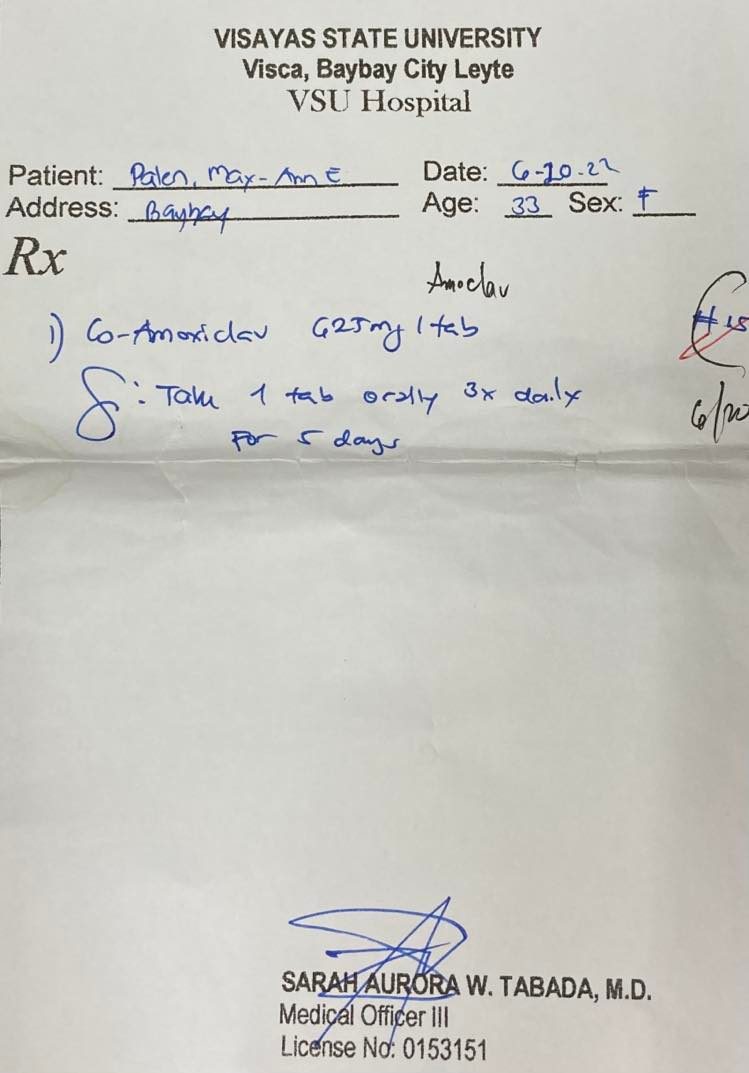 VISAYAS STATE UNIVERSITY
Visca, Baybay City Leyte
VSU Hospital
Patient: Palen, Max-Ann E Date: 6-20-22
Address: Baybay Age: 33 Sex: F
Rx
Amoclav
1) Co-Amoxiclav 625mg 1 tab #15
S: Take 1 tab orally 3x daily 6/20
for 5 days
SARAH AURORA W. TABADA, M.D.
Medical Officer III
License No: 0153151